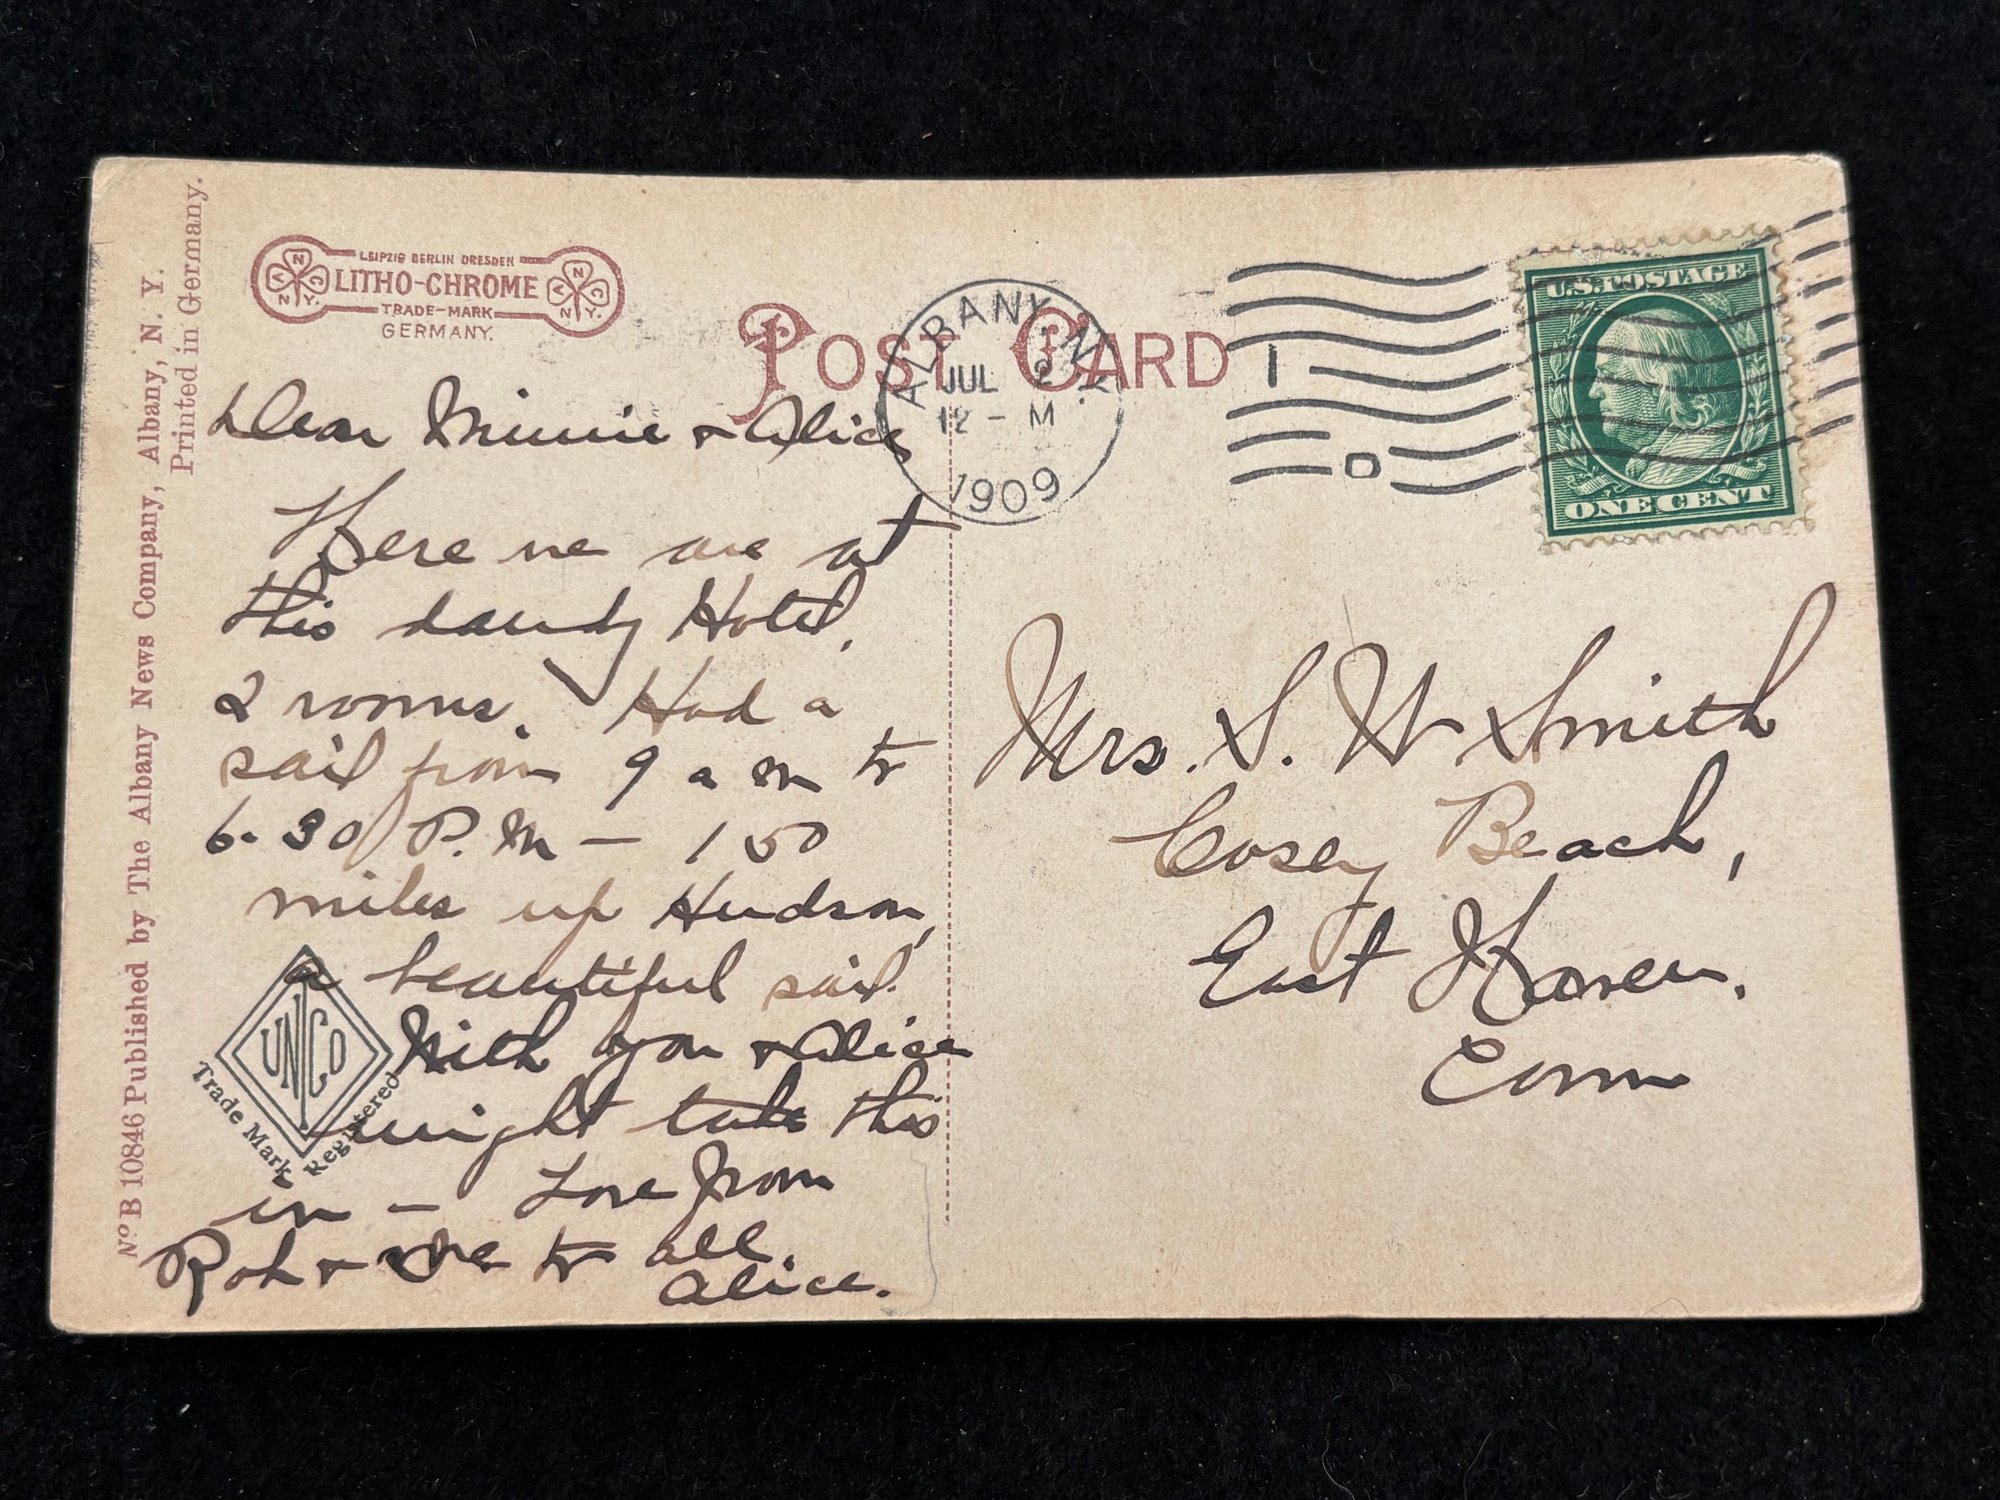 Nº B 10846 Published by The Albany News Company, Albany, N. Y.
Printed in Germany.
LEIPZIG BERLIN DRESDEN
LITHO-CHROME
TRADE-MARK
GERMANY.
N.Y.
N.Y.
POST CARD
ALBANY, N.Y.
JUL 2
12 - M
1909
1
U.S. POSTAGE
ONE CENT
Dear Minnie & Alice
Here we are at
this dandy Hotel,
2 rooms. Had a
sail from 9 a m to
6.30 P.M — 150
miles up Hudson,
a beautiful sail.
Wish you & Alice
might take this
in — Love from
Rob & to all.
Alice.
UNCO
Trade Mark Registered
Mrs. S. W Smith
Cosey Beach,
East Haven.
Conn